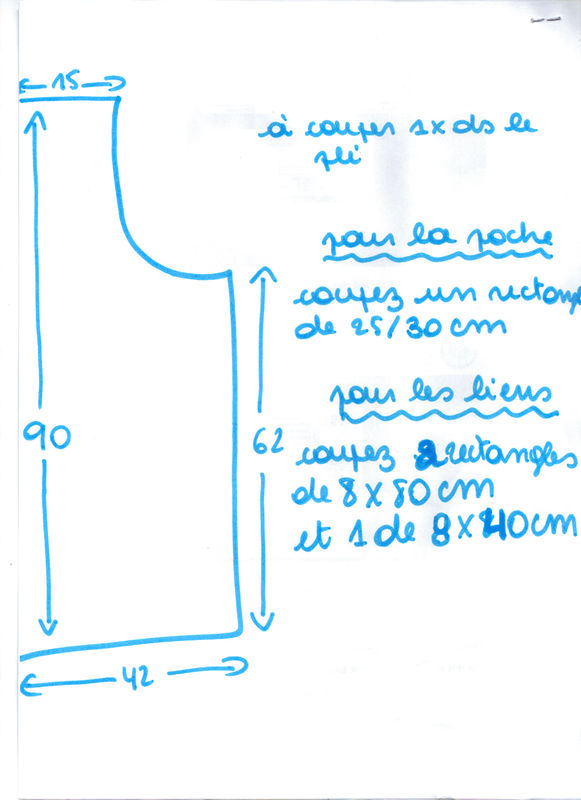 15
à couper 1x ds le
pli
pour la poche
coupez un rectangle
de 25/30 cm
pour les liens
90
62
coupez 2 rectangles
de 8 x 80 cm
et 1 de 8 x 40 cm
42